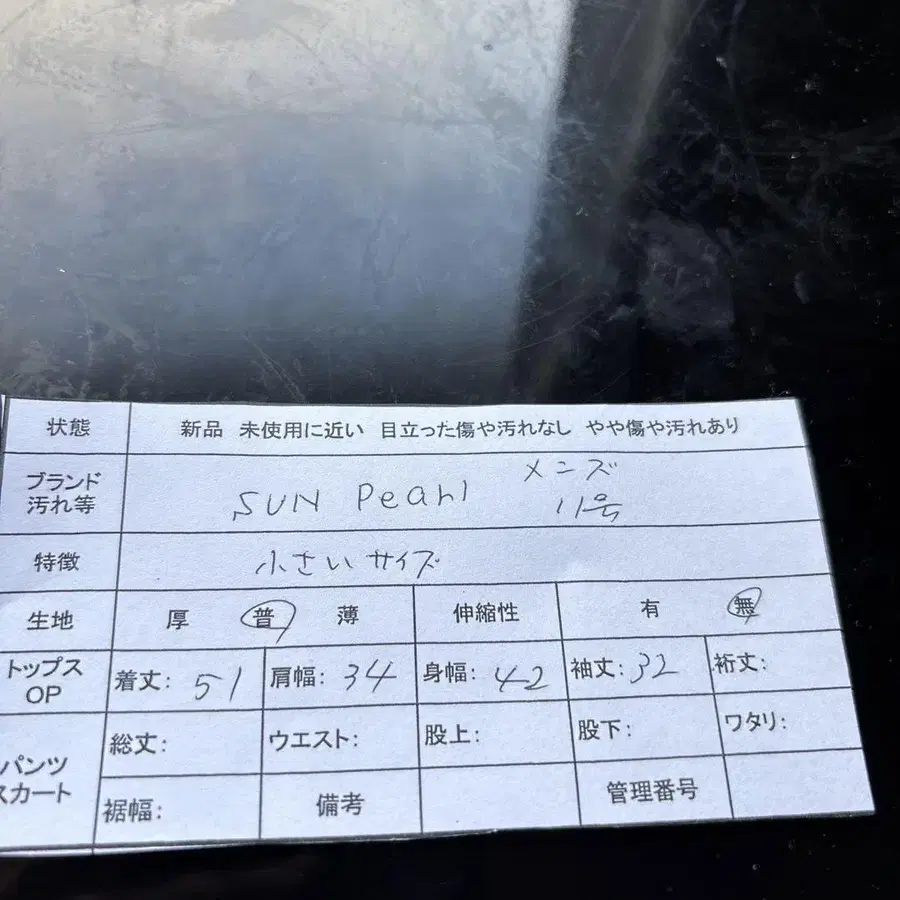 状態 新品 未使用に近い 目立った傷や汚れなし やや傷や汚れあり
ブランド
汚れ等
SUN Pearl メンズ
11号
特徴 小さいサイズ
生地 厚 普 薄 伸縮性 有 無
トップス
OP
着丈: 51 肩幅: 34 身幅: 42 袖丈: 32 裄丈:
パンツ
スカート
総丈: ウエスト: 股上: 股下: ワタリ:
裾幅: 備考 管理番号